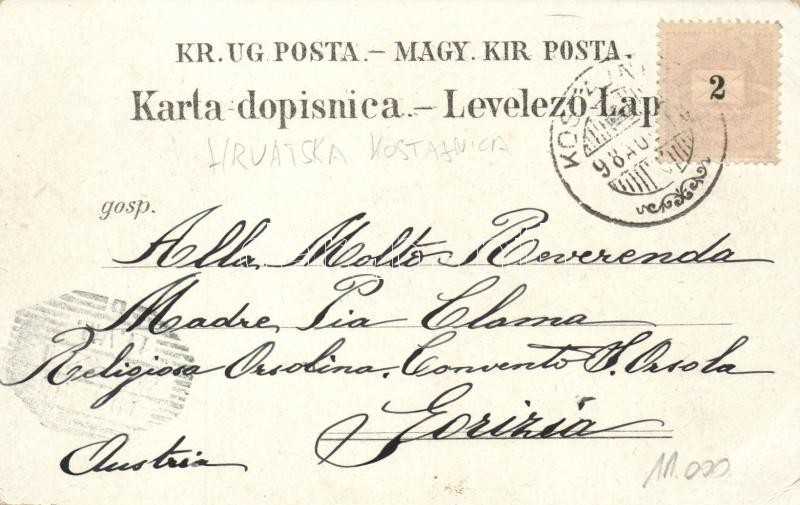 KR. UG. POSTA. – MAGY. KIR. POSTA.
2
Karta dopisnica. – Levelező-Lap
98 AU
HRVATSKA KOSTAJNICA
gosp.
Alla Molto Reverenda
Madre Pia Clama
Religiosa Orsolina. Convento S. Orsola
Gorizia
Austria
11.000.